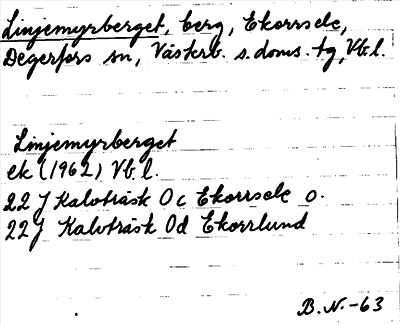 Linjemyrberget, berg, Ekorrsele,
Degerfors sn, Västerb. s. doms. tg, Vb.l.
Linjemyrberget
ek (1962) Vb.l.
22 J Kalvträsk 0 c Ekorrsele o.
22 J Kalvträsk 0d Ekorrlund
B.N.-63